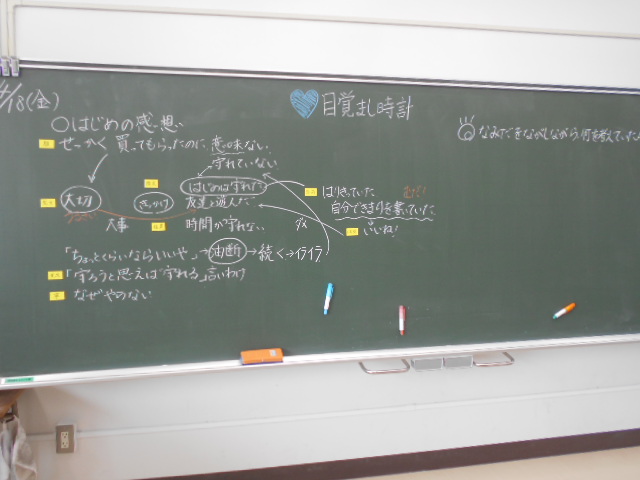 4/18(金)
目覚まし時計
○はじめの感想
せっかく買ってもらったのに意味ない
守れていない
はじめは守れた
大切
きっかけ
友達と遊んだ
大事
時間が守れない
はりきっていた
自分できまりを書いていた
ダメ
いいね!
「ちょっとくらいならいいや」→油断→続く→イライラ
「守ろうと思えば守れる」言いわけ
なぜやのない
なみだをながしながら何を考えていたか